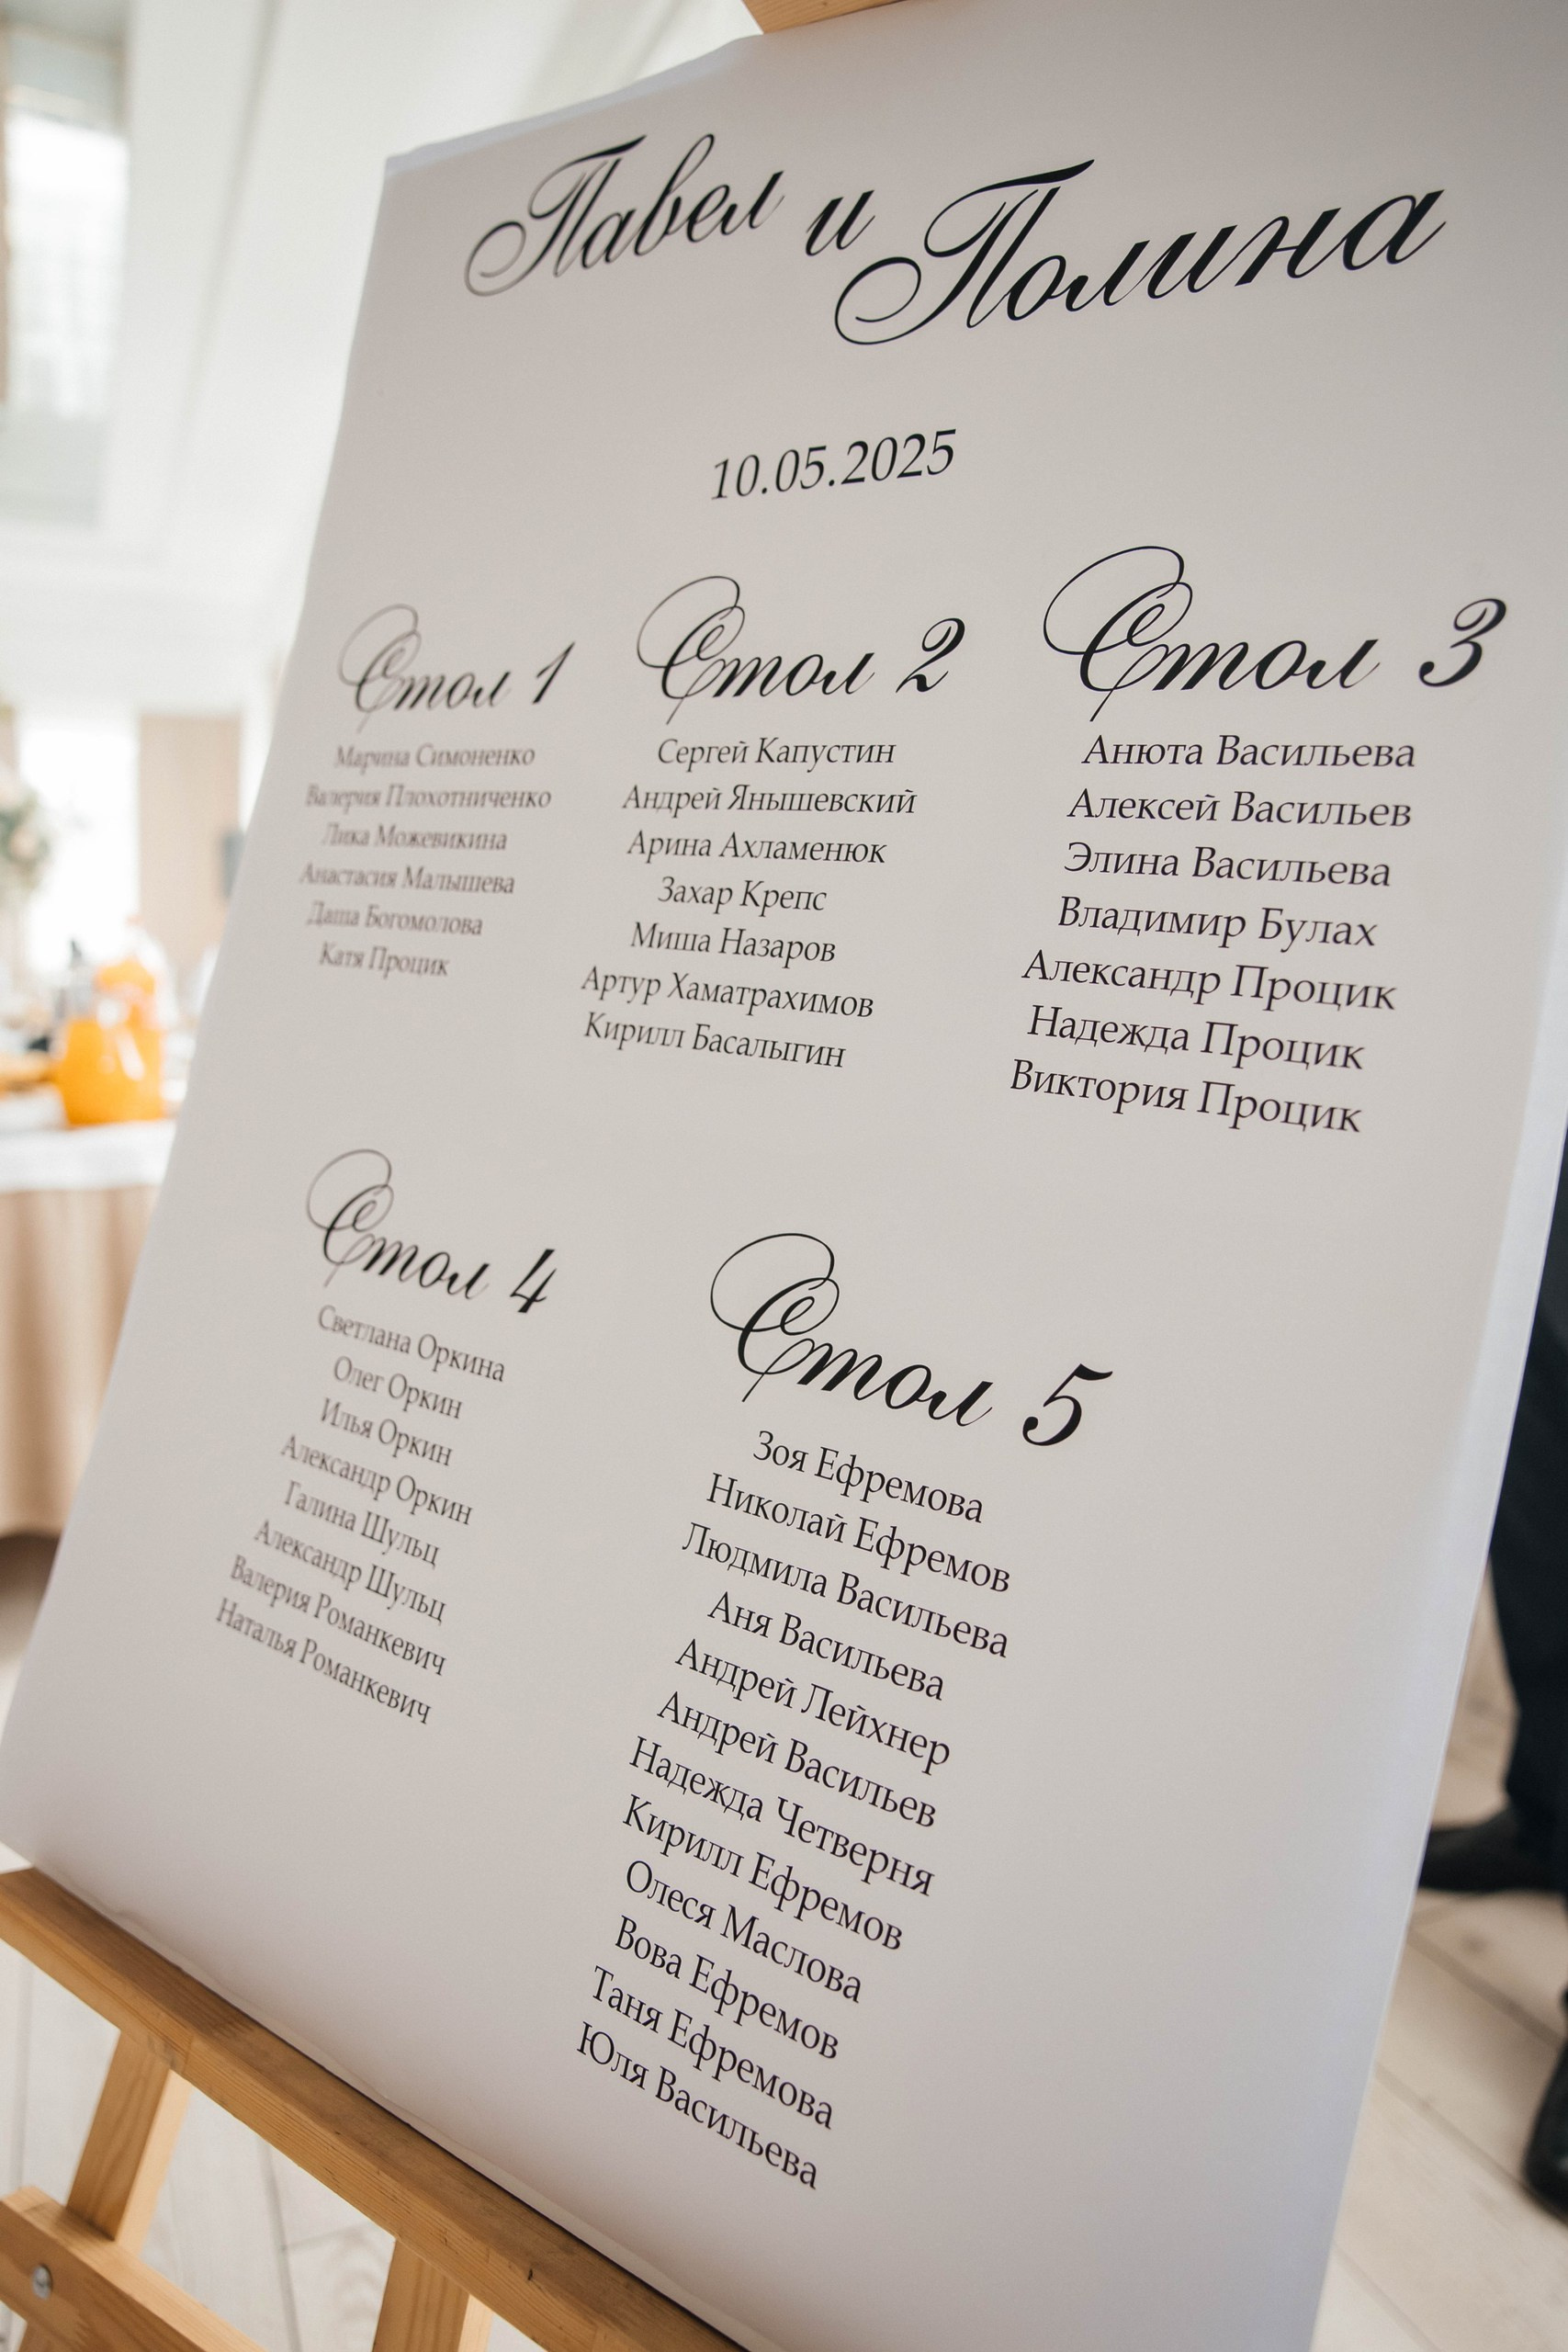 Павел и Полина
10.05.2025
Стол 1
Марина Симоненко
Валерия Плохотниченко
Лика Можевикина
Анастасия Малышева
Даша Богомолова
Катя Процик
Стол 2
Сергей Капустин
Андрей Янышевский
Арина Ахламенюк
Захар Крепс
Миша Назаров
Артур Хаматрахимов
Кирилл Басалыгин
Стол 3
Анюта Васильева
Алексей Васильев
Элина Васильева
Владимир Булах
Александр Процик
Надежда Процик
Виктория Процик
Стол 4
Светлана Оркина
Олег Оркин
Илья Оркин
Александр Оркин
Галина Шульц
Александр Шульц
Валерия Романкевич
Наталья Романкевич
Стол 5
Зоя Ефремова
Николай Ефремов
Людмила Васильева
Аня Васильева
Андрей Лейхнер
Андрей Васильев
Надежда Четверня
Кирилл Ефремов
Олеся Маслова
Вова Ефремов
Таня Ефремова
Юля Васильева